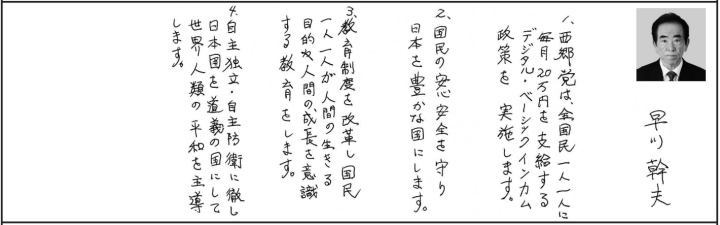 早川幹夫
1、西郷党は、全国民一人一人に
毎月20万円を支給する
デジタル・ベーシックインカム
政策を実施します。
2、国民の安心安全を守り
日本を豊かな国にします。
3、教育制度を改革し国民
一人一人が人間の生きる
目的や人間の成長を意識
する教育をします。
4、自主独立・自主防衛に徹し
日本国を道義の国にして
世界人類の平和を主導
します。